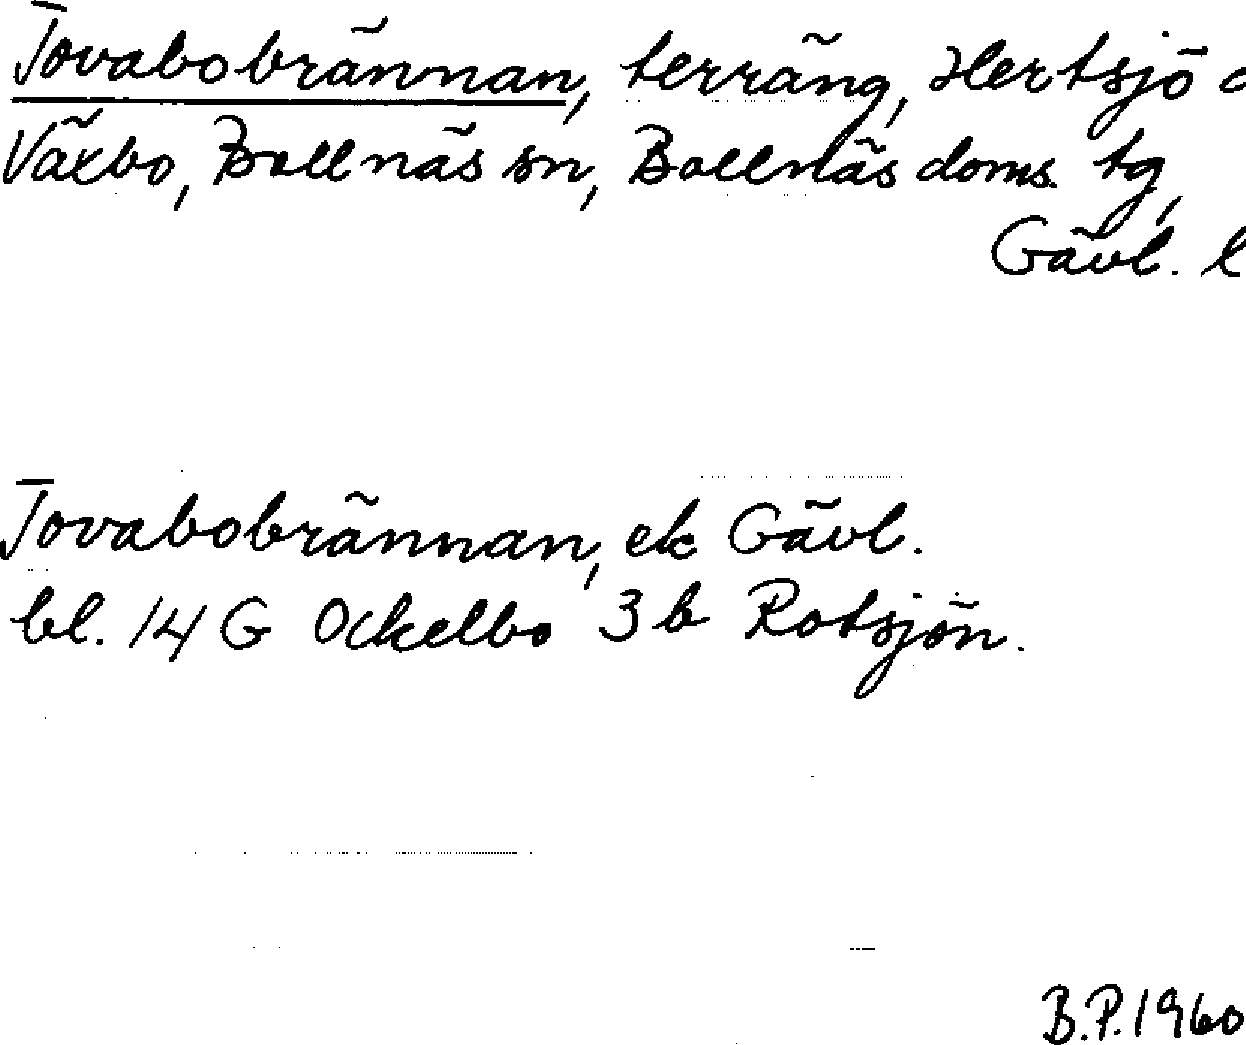 Tovabobrännan, terräng, Hertsjö
Växbo, Bollnäs sn, Bollnäs doms. tg,
Gävl. l
Tovabobrännan, ek Gävl.
bl. 14 G Ockelbo 3 b Rotsjön.
B.P. 1960